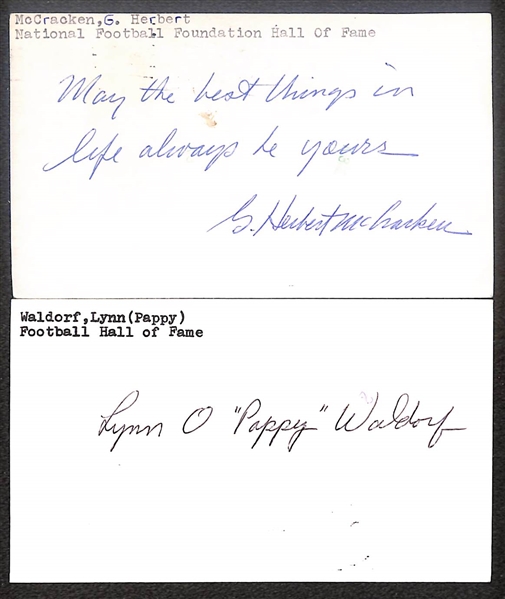 McCracken,G. Herbert
National Football Foundation Hall Of Fame
May the best things in
life always be yours
G. Herbert McCracken
Waldorf,Lynn(Pappy)
Football Hall of Fame
Lynn O "Pappy" Waldorf